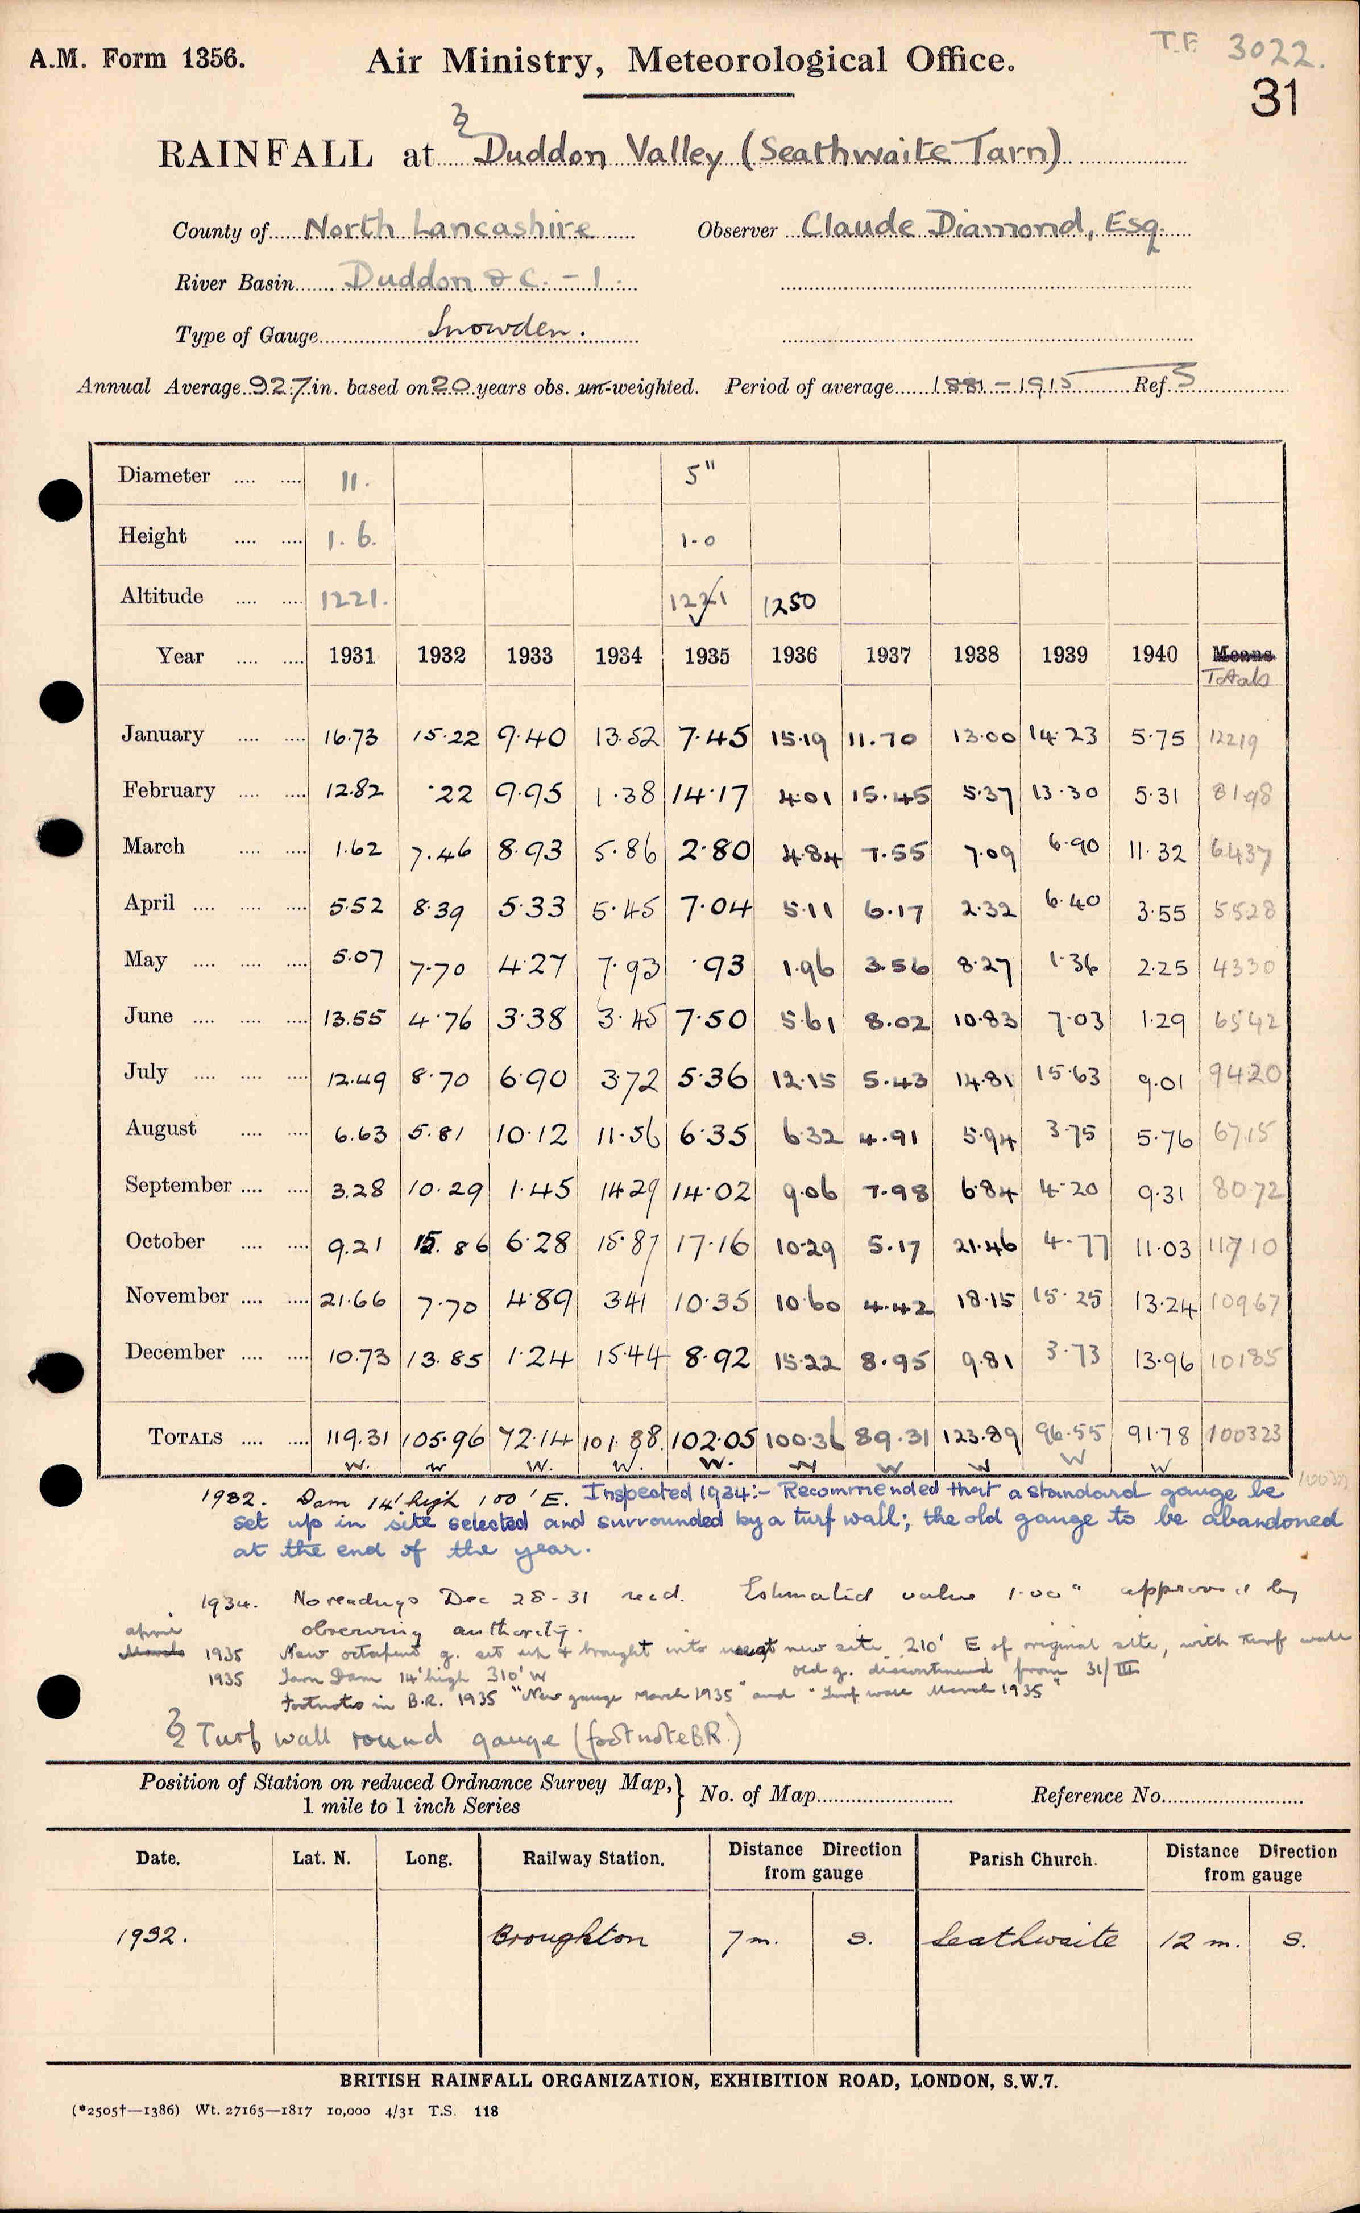 A.M. Form 1356.
Air Ministry, Meteorological Office.
T.F. 3022.
31
RAINFALL at Duddon Valley (Seathwaite Tarn)
County of North Lancashire Observer Claude Diamond, Esq.
River Basin Duddon &c. - 1.
Type of Gauge Snowden.
Annual Average 92.7 in. based on 20 years obs. un-weighted. Period of average 1881 - 1915 Ref. S
Diameter .... .... 11. 5"
Height .... .... 1.6. 1.0
Altitude .... .... 1221. 1221 1250
Year .... .... 1931 1932 1933 1934 1935 1936 1937 1938 1939 1940 Means
Totals
January .... .... 16.73 15.22 9.40 13.52 7.45 15.19 11.70 13.00 14.23 5.75 12219
February .... .... 12.82 .22 9.95 1.38 14.17 4.01 15.45 5.37 13.30 5.31 8198
March .... .... 1.62 7.46 8.93 5.86 2.80 4.84 7.55 7.09 6.90 11.32 6437
April .... .... .... 5.52 8.39 5.33 5.45 7.04 5.11 6.17 2.32 6.40 3.55 5528
May .... .... .... 5.07 7.70 4.27 7.93 .93 1.96 3.56 8.27 1.36 2.25 4330
June .... .... .... 13.55 4.76 3.38 3.45 7.50 5.61 8.02 10.83 7.03 1.29 6542
July .... .... .... 12.49 8.70 6.90 3.72 5.36 12.15 5.43 14.81 15.63 9.01 9420
August .... .... 6.63 5.81 10.12 11.56 6.35 6.32 4.91 5.94 3.75 5.76 6715
September .... .... 3.28 10.29 1.45 14.29 14.02 9.06 7.98 6.84 4.20 9.31 8072
October .... .... 9.21 15.86 6.28 15.87 17.16 10.29 5.17 21.46 4.77 11.03 11710
November .... .... 21.66 7.70 4.89 3.41 10.35 10.60 4.42 18.15 15.25 13.24 10967
December .... .... 10.73 13.85 1.24 15.44 8.92 15.22 8.95 9.81 3.73 13.96 10185
TOTALS .... .... 119.31 105.96 72.14 101.88 102.05 100.36 89.31 123.89 96.55 91.78 100323
W. W W. W. W. W W W W W
1932. Dam 14' high 100' E. Inspected 1934:- Recommended that a standard gauge be
set up in site selected and surrounded by a turf wall; the old gauge to be abandoned
at the end of the year.
1934. No readings Dec 28-31 recd. Estimated value 1.00" approved by
observing authority.
April
March 1935 New octapent g. set up & brought into use at new site 210' E of original site, with turf wall
old g. discontinued from 31/III
1935 Tarn Dam 14' high 310' W
Footnotes in B.R. 1935 "New gauge March 1935" and "Turf wall March 1935"
Turf wall round gauge (footnote B.R.)
Position of Station on reduced Ordnance Survey Map,
1 mile to 1 inch Series
No. of Map Reference No.
Date. Lat. N. Long. Railway Station. Distance Direction from gauge Parish Church. Distance Direction from gauge
1932. Broughton 7 m. S. Seathwaite 12 m. S.
BRITISH RAINFALL ORGANIZATION, EXHIBITION ROAD, LONDON, S.W.7.
(*2505†—1386) Wt. 27165—1817 10,000 4/31 T.S. 118